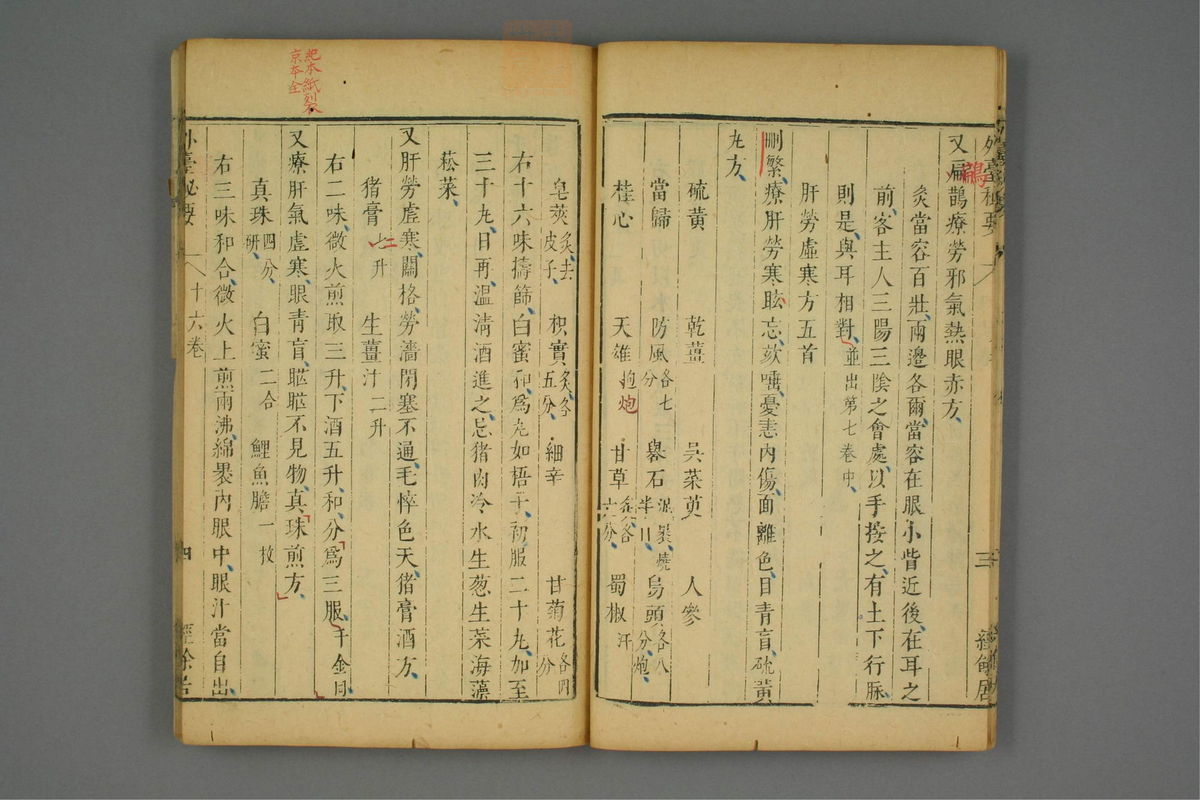 外臺秘要
三
經餘居
又扁鵲療勞邪氣熱眼赤方
鶣
灸當容百壯兩邊各爾當容在眼小眥近後在耳之
前客主人三陽三陰之會處以手按之有上下行脉
則是與耳相對並出第七卷中
肝勞虛寒方五首
刪繁療肝勞寒眩忘欬唾憂恚內傷面離色目青盲硫黃
丸方
硫黃 乾薑 吳茱萸 人參
當歸 防風各七分 礜石泥裹燒半日 烏頭各八分炮
桂心 天雄炮 炮 甘草炙各六分 蜀椒汗
皂莢炙去皮子 枳實炙各五分 細辛 甘菊花各四分
右十六味擣篩白蜜和爲丸如梧子初服二十丸加至
三十丸日再溫清酒進之忌猪肉冷水生葱生菜海藻
菘菜
又肝勞虛寒關格勞濇閉塞不通毛悴色夭猪膏酒方
猪膏七升 二 生薑汁二升
右二味微火煎取三升下酒五升和分爲三服千金同
又療肝氣虛寒眼青盲䀮䀮不見物真珠煎方
真珠四分研 白蜜二合 鯉魚膽一枚
右三味和合微火上煎兩沸綿裹內眼中眼汁當自出
外臺祕要
十六卷
四
經餘居
紀本紙裂
京本全